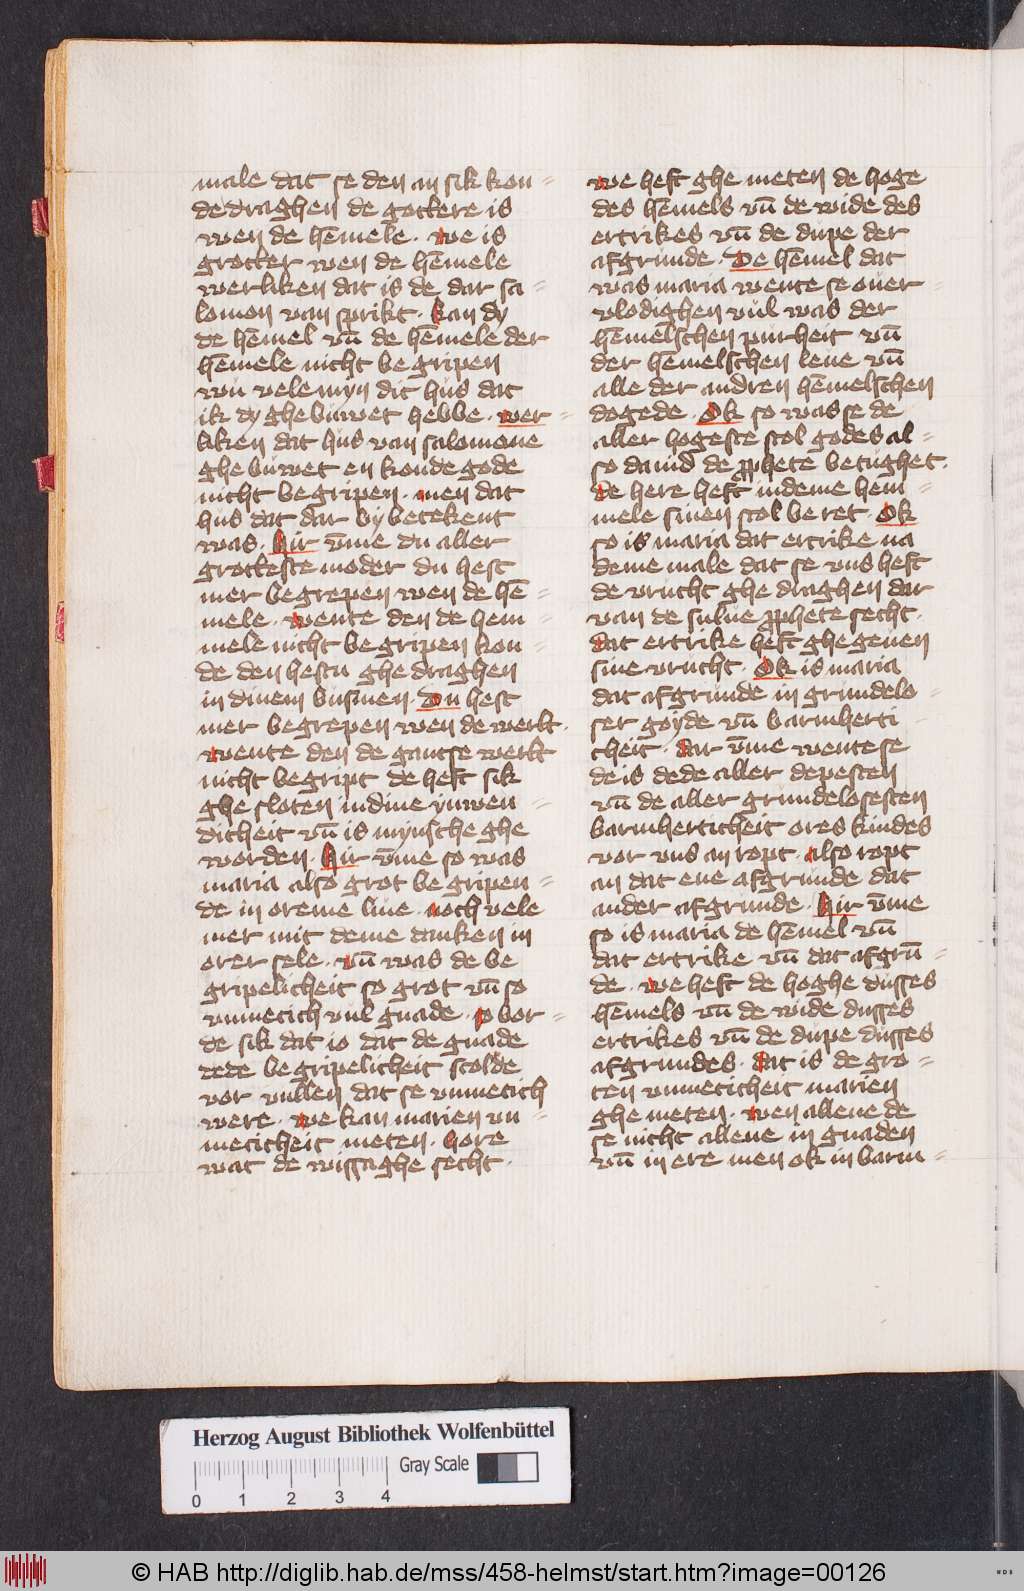 male dat se den an sik kon=
de draghen de gottere is
wen de hēmele. we is
grotter wen de hēmele
werliken dat is de dar sa=
lomon van sprikt. kan dy
de hēmel vn̄ de hēmele der
hēmele nicht begripen
wu vele myn dit hus dat
ik dy ghebuwet hebbe. wer=
liken dat hus van salomone
ghebuwet en konde gode
nicht begripen. men dat
hus dat dar by betekent
was. Hir v̄me du aller
grotteste moder du hest
mer begrepen wen de hē=
mele. wente den de hem=
mele nicht begripen kon=
de den hestu ghedraghen
in dinem busmen. Du hest
mer begrepen wen de werlt.
wente den de gantse werlt
nicht begript de heft sik
ghe sloten in dine ynwen=
dicheit vn̄ is mynsche ghe
worden. Hir v̄me so was
maria also grot begripen=
de in oreme liue. noch vele
mer mit deme danken in
orer sele. vn̄ was de be
gripelicheit so grot vn̄ so
vnmetich vul gnade. so bor=
de sik dat io dat de gnade
dede begripelicheit scolde
vor vullen dat se vnmetich
were. we kan marien vn=
meticheit meten. hore
wat de wissaghe secht.
we heft ghe meten de hoge
des hēmels vn̄ de wide des
ertrikes vn̄ de dupe der
afgrunde. De hēmel dat
was maria wente se ouer=
vlodighen vul was der
hēmelschen purheit vn̄
der hēmelschen leue vn̄
alle der andren hēmelschen
dogede. Ok so was se de
aller hogeste stol godes al=
so dauid de ꝓphete betughet.
de here heft in deme hem=
mele sinen stol beret. Ok
so is maria dat ertrike na
deme male dat se vns heft
de vrucht ghe draghen dar
van de sulue ꝓphete secht.
dat ertrike heft ghegeuen
sine vrucht. Ok is maria
dat afgrunde in grundelo=
ser goyde vn̄ barmherti=
cheit. dar v̄me wente se
de is dede aller depesten
vn̄ de aller grundelosesten
barmherticheit ores kindes
vor vns an ropt. also ropt
an dat ene afgrunde dat
ander afgrunde. Hir v̄me
so is maria de hēmel vn̄
dat ertrike vn̄ dat afgrū=
de. we heft de hoghe dusses
hēmels vn̄ de wide dusses
ertrikes vn̄ de dupe dusses
afgrundes. dat is de gro=
ten vnmeticheit marien
ghe meten. wen allene de
se nicht allene in gnaden
vn̄ in ere men ok in barm=
Herzog August Bibliothek Wolfenbüttel
Gray Scale
0 1 2 3 4
© HAB http://diglib.hab.de/mss/458-helmst/start.htm?image=00126